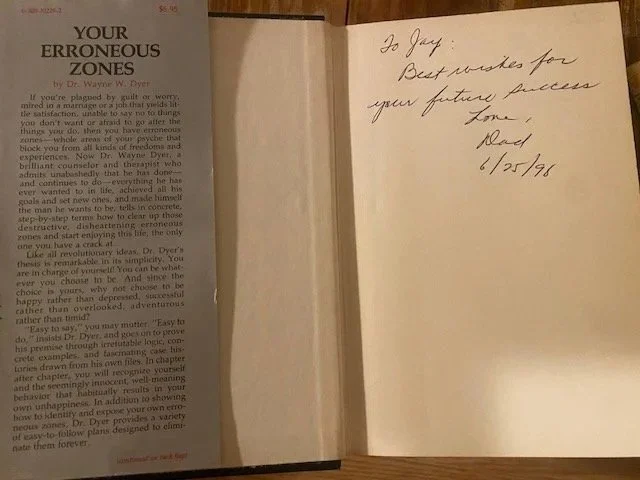 $6.95
YOUR
ERRONEOUS
ZONES
by Dr. Wayne W. Dyer
If you're plagued by guilt or worry,
mired in a marriage or a job that yields lit-
tle satisfaction, unable to say no to things
you don't want or afraid to go after the
things you do, then you have erroneous
zones—whole areas of your psyche that
block you from all kinds of freedoms and
experiences. Now Dr. Wayne Dyer, a
brilliant counselor and therapist who
admits unabashedly that he has done—
and continues to do—everything he has
ever wanted to in life, achieved all his
goals and set new ones, and made himself
the man he wants to be, tells in concrete,
step-by-step terms how to clear up those
destructive, disheartening erroneous
zones and start enjoying this life, the only
one you have a crack at.
Like all revolutionary ideas, Dr. Dyer's
thesis is remarkable in its simplicity. You
are in charge of yourself! You can be what-
ever you choose to be. And since the
choice is yours, why not choose to be
happy rather than depressed, successful
rather than overlooked, adventurous
rather than timid?
"Easy to say," you may mutter. "Easy to
do," insists Dr. Dyer, and goes on to prove
his premise through irrefutable logic, con-
crete examples, and fascinating case his-
tories drawn from his own files. In chapter
after chapter, you will recognize yourself
and the seemingly innocent, well-meaning
behavior that habitually results in your
own unhappiness. In addition to showing
how to identify and expose your own erro-
neous zones, Dr. Dyer provides a variety
of easy-to-follow plans designed to elimi-
nate them forever.
(continued on back flap)
To Jay:
Best wishes for
your future success
Love,
Dad
6/25/98